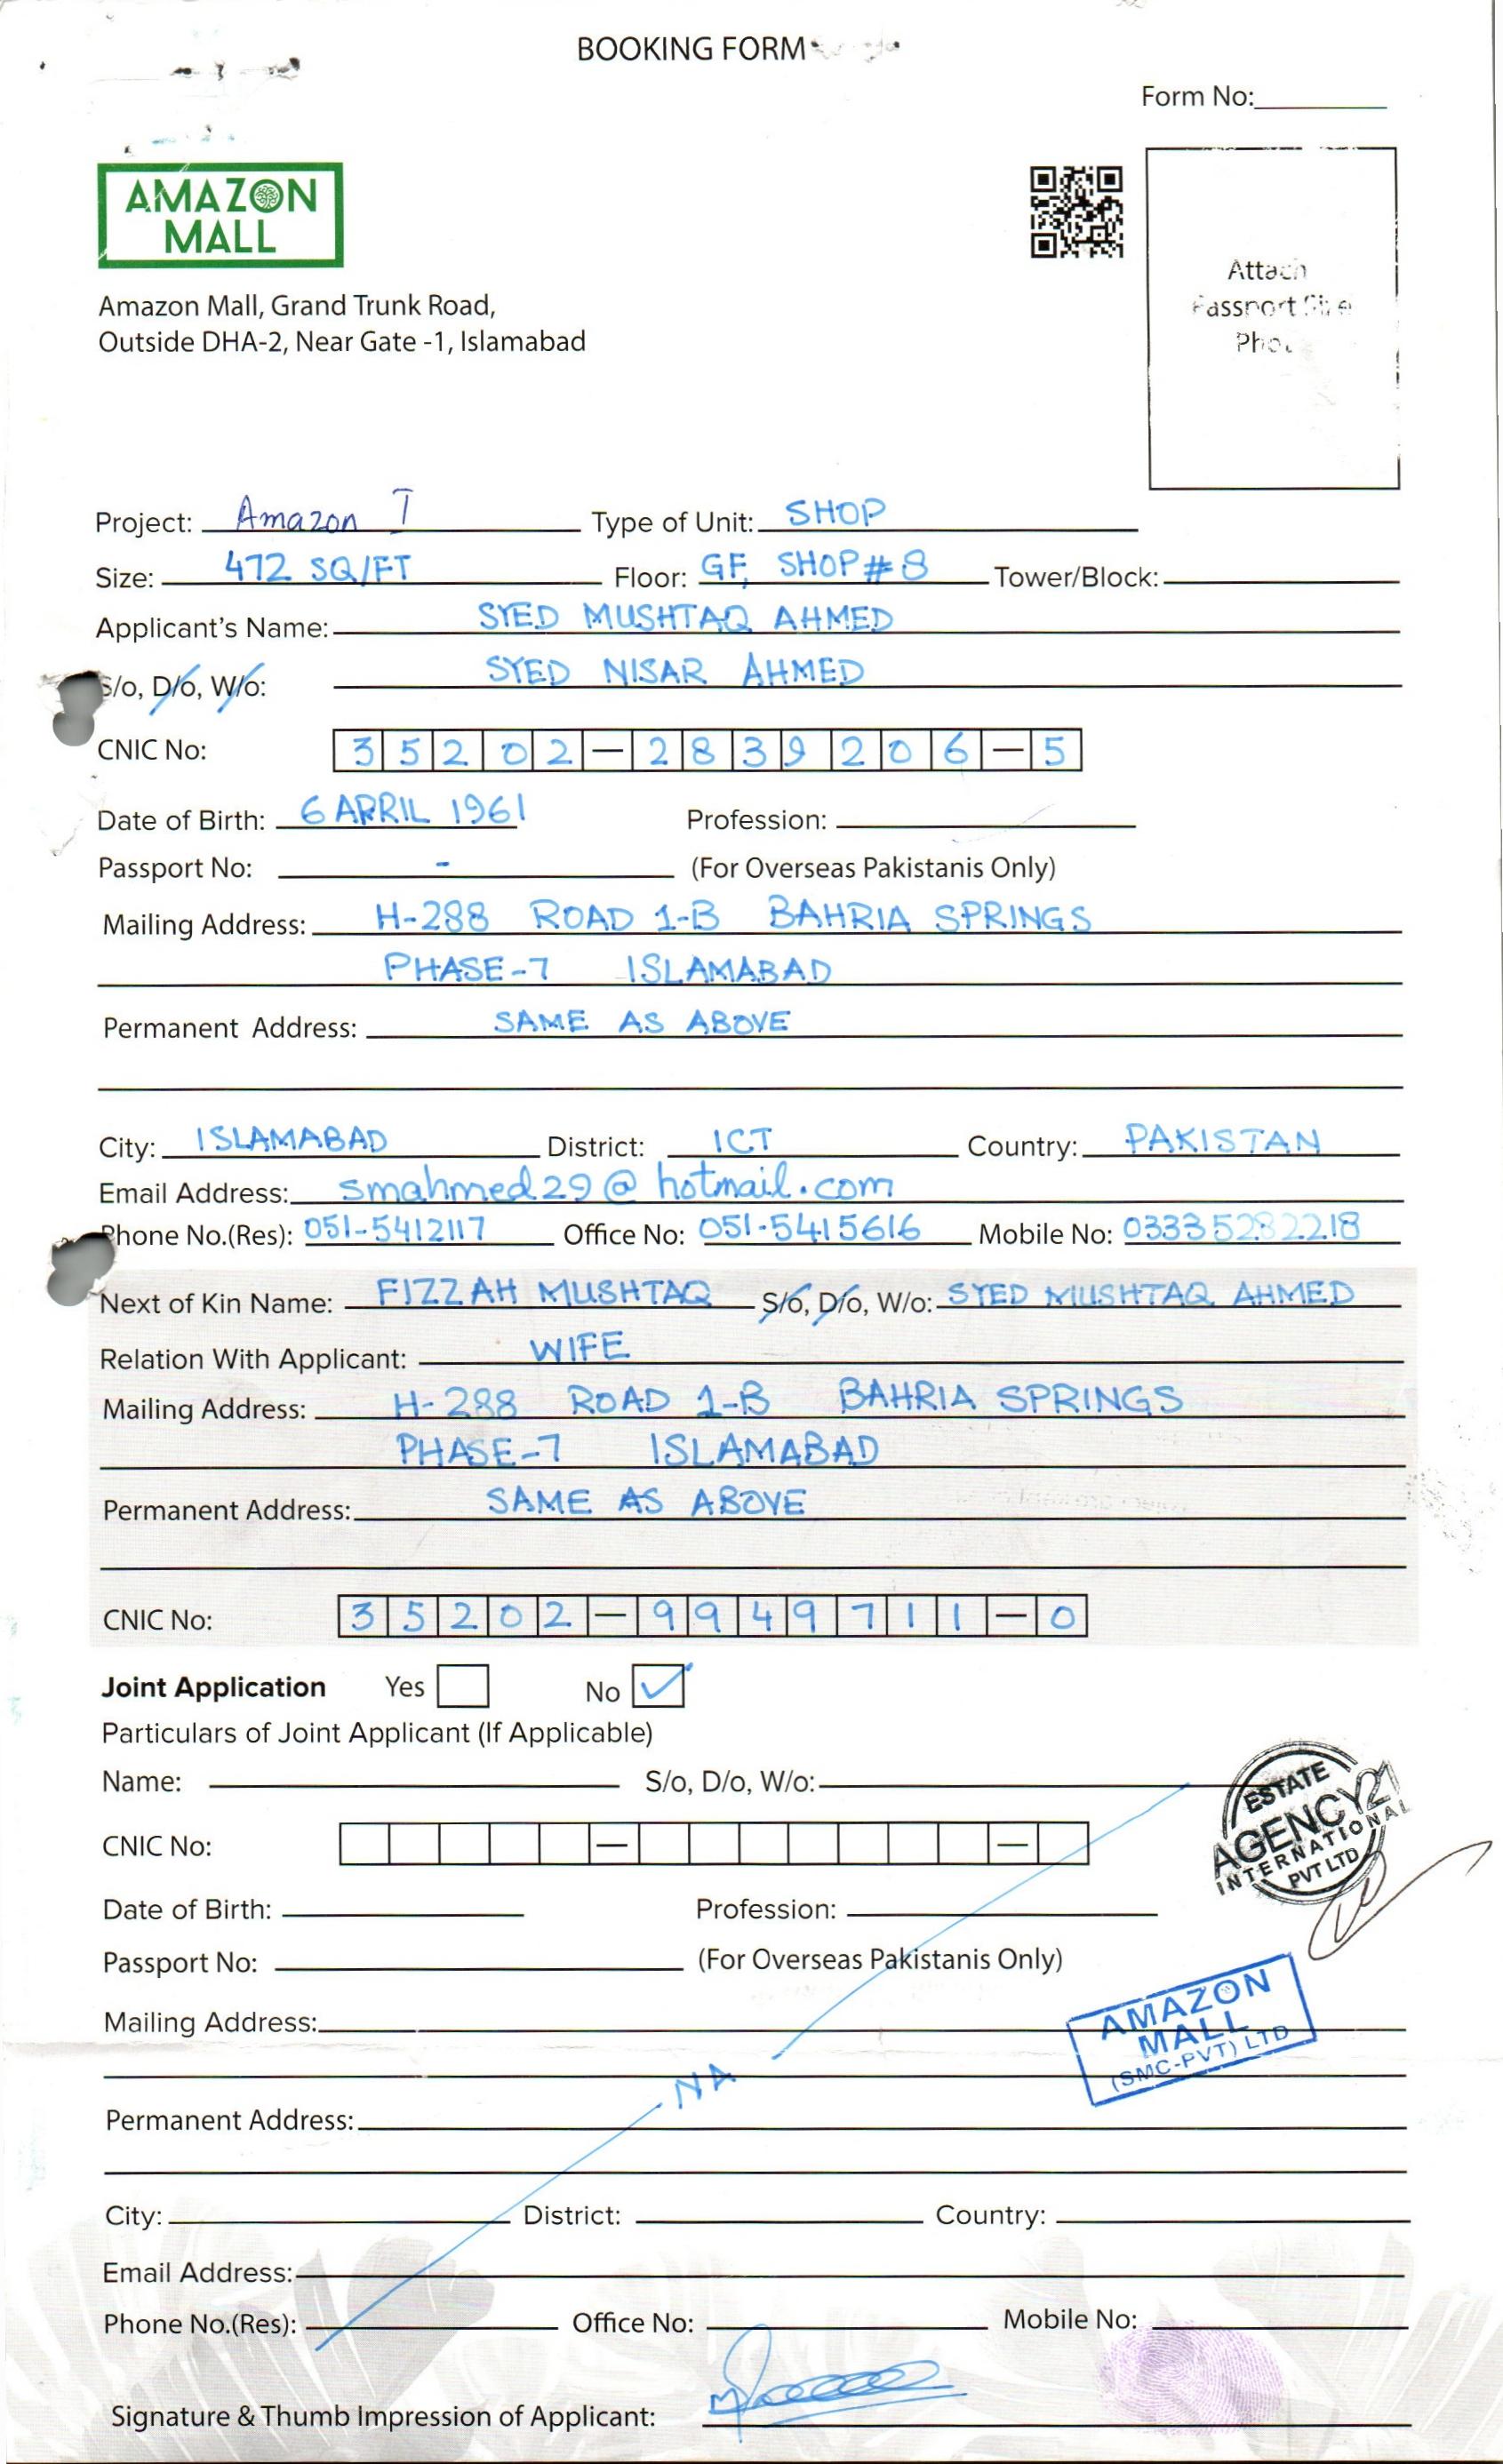 BOOKING FORM
Form No:
AMAZON
MALL
Amazon Mall, Grand Trunk Road,
Outside DHA-2, Near Gate -1, Islamabad
Attach
Passport Size
Photo
Project: Amazon I Type of Unit: SHOP
Size: 472 SQ/FT Floor: GF, SHOP#8 Tower/Block:
Applicant's Name: SYED MUSHTAQ AHMED
S/o, D/o, W/o: SYED NISAR AHMED
CNIC No: 35202-2839206-5
Date of Birth: 6 APRIL 1961 Profession:
Passport No: - (For Overseas Pakistanis Only)
Mailing Address: H-288 ROAD 1-B BAHRIA SPRINGS
PHASE-7 ISLAMABAD
Permanent Address: SAME AS ABOVE
City: ISLAMABAD District: ICT Country: PAKISTAN
Email Address: smahmed29@hotmail.com
Phone No.(Res): 051-5412117 Office No: 051-5415616 Mobile No: 03335282218
Next of Kin Name: FIZZAH MUSHTAQ S/o, D/o, W/o: SYED MUSHTAQ AHMED
Relation With Applicant: WIFE
Mailing Address: H-288 ROAD 1-B BAHRIA SPRINGS
PHASE-7 ISLAMABAD
Permanent Address: SAME AS ABOVE
CNIC No: 35202-9949711-0
Joint Application Yes No ✓
Particulars of Joint Applicant (If Applicable)
Name: S/o, D/o, W/o:
CNIC No: - -
Date of Birth: Profession:
Passport No: (For Overseas Pakistanis Only)
ESTATE
AGENCY21
INTERNATIONAL
PVT LTD
Mailing Address:
AMAZON
MALL
(SMC-PVT) LTD
NA
Permanent Address:
City: District: Country:
Email Address:
Phone No.(Res): Office No: Mobile No:
Signature & Thumb Impression of Applicant: